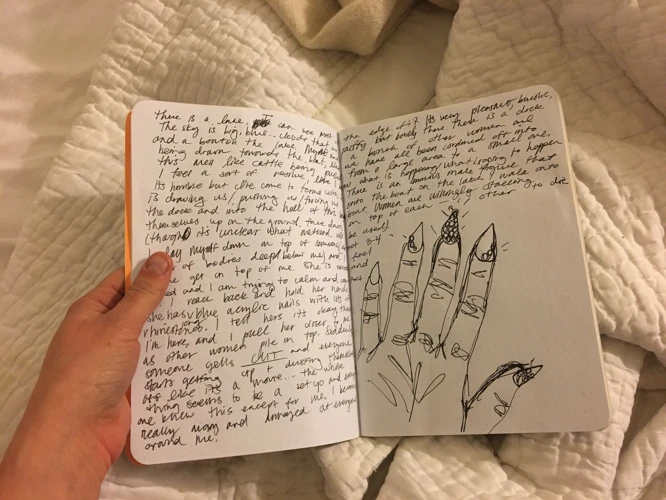 There is a lake, I can see
The sky is big, blue... clouds that
and a boat on the lake. Myself and
being drawn towards the boat, like
this area like cattle being
I feel a sort of passive, like
Its horrible but I've come to terms with
is drawing us / pulling us / forcing us
the dock and into the hull of this
themselves up on the ground, three deep
(though it's unclear what
I lay myself down on top of someone (about 3-4
of bodies deep below me) and
get on top of me. She is
and I am trying to calm and
reach back and hold her hand
She has long blue acrylic nails with lots of
rhinestones. I tell hers its okay that
I'm here, and I pull her closer to me
as other women pile on top. Suddenly
someone yells CUT and everyone
starts getting up + dusting themselves
off like its a movie... the whole
thing seems to be a set up and every
one knew this except for me, I become
really angry and enraged at everyone
around me!
the edge of it. Its very pleasant, bucolic,
pretty but lonely there. There is a dock
a bunch of other women and
we have all been cordoned off into
from a large area to a small one,
what is happening, what is going to happen
There is an ominous male figure that
onto the boat on the lake, I walk onto
boat. Women are willingly stacking
on top of each other to die
be used).
feel
and